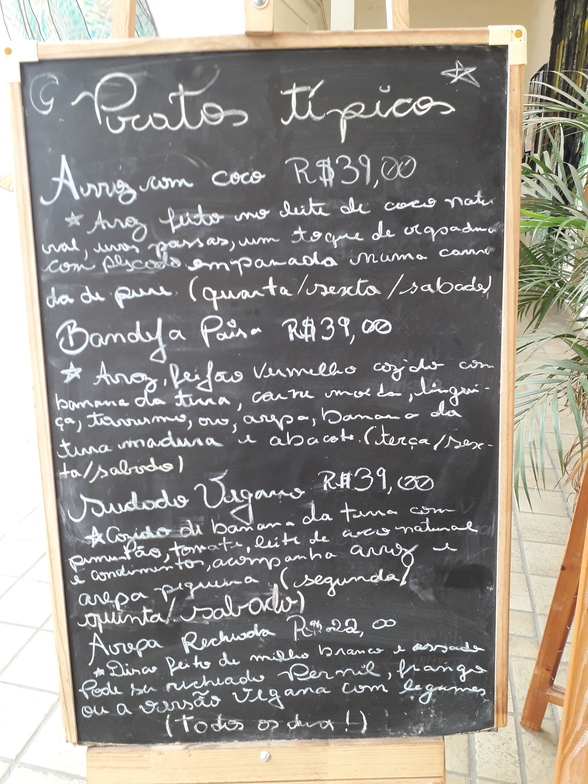 Pratos típicos
Arroz com coco R$39,00
Arroz feito no leite de coco natu
ral, uvas passas, um toque de
con pescado empanada numa cama
da de pure. (quarta/sexta/sabado)
Bandeja Paisa R$39,00
Arroz, feijão vermelho cozido com
banana da terra, carne moida, lingui-
ça, torresmo, ovo, arepa, banana da
terra madura e abacate. (terça/sex-
ta/sabado)
Sudado Vegano R$39,00
Cozido de banana da terra com
pimentão, tomate, leite de coco natural
e condimentos, acompanha arroz e
arepa pequena (segunda/
quinta/sabado)
Arepa Rechuda R$22,00
Disco feito de milho branco e assado
Pode se recheado Pernil, frango
ou a versão vegana com legumes
(Todos os dias!)